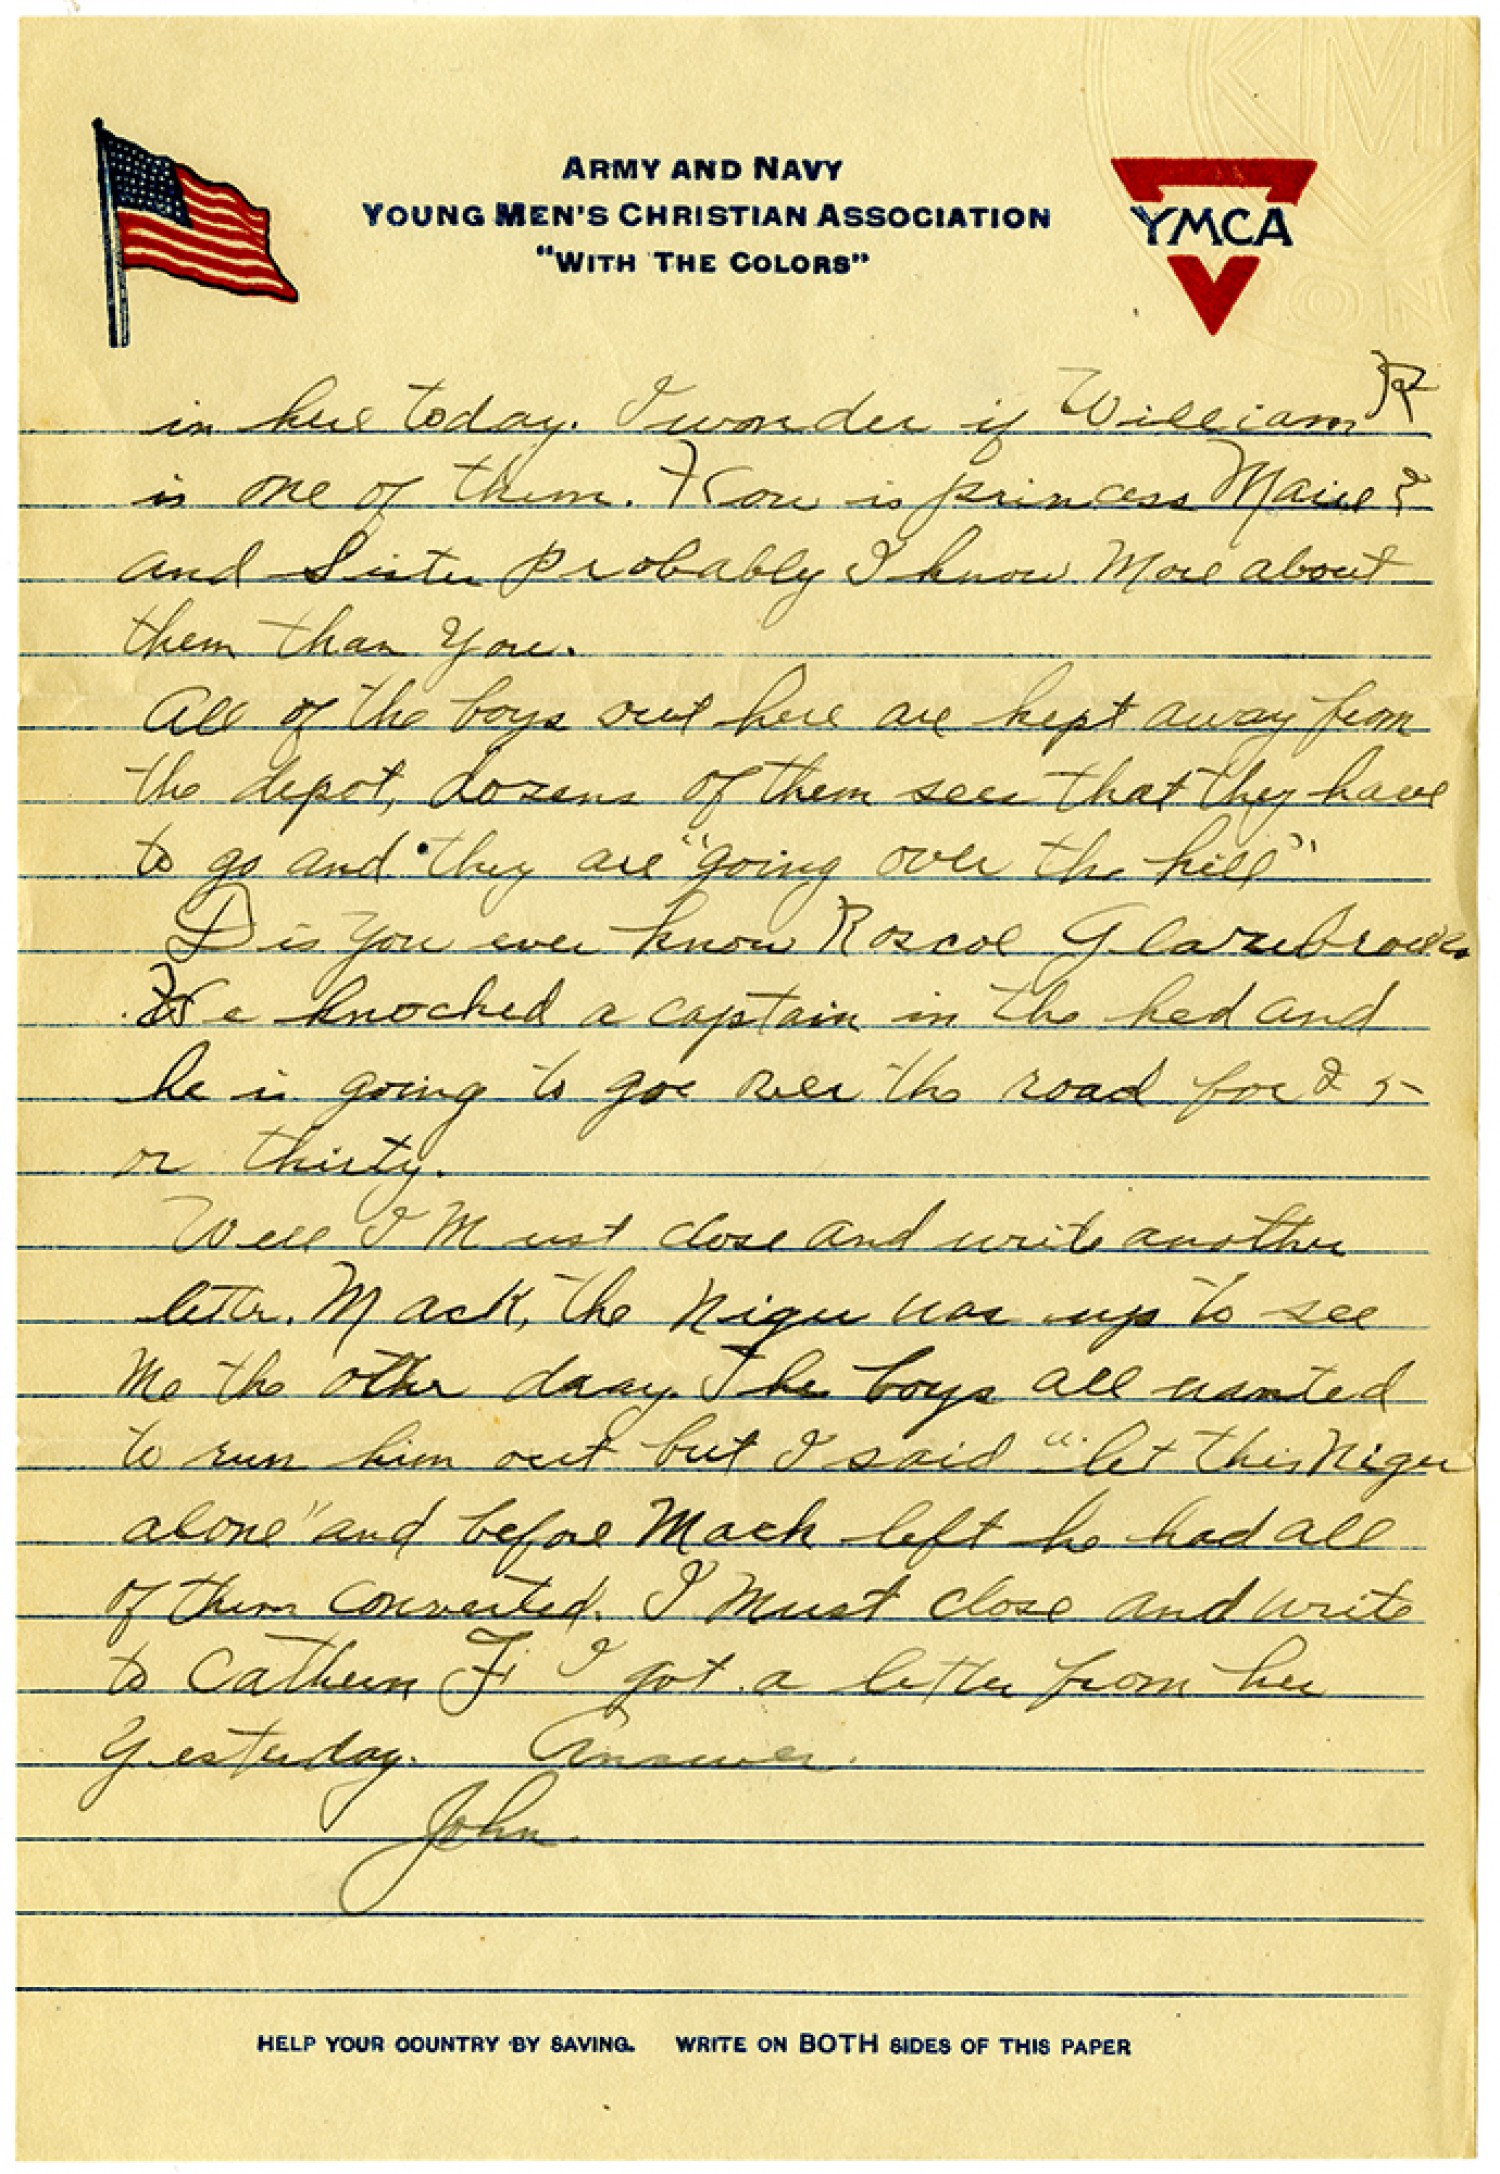 ARMY AND NAVY
YOUNG MEN'S CHRISTIAN ASSOCIATION
"WITH THE COLORS"
YMCA
in here today. I wonder if William R
is one of them. How is princess Marie?
and Sister probably I know More about
them than you.
All of the boys out here are kept away from
the depot, dozens of them sees that they have
to go and they are "going over the hill"
Dis you ever know Roscoe Glazebrooks
He knocked a captain in the hed and
he is going to goe over the road for 25
or thirty.
Well I Must close and write another
letter. Mack, the Niger was up to see
Me the other daay. The boys all wanted
to run him out but I said "let this Niger
alone" and before Mack left he had all
of them converted. I Must close and write
to Cathern F. I got a letter from her
Yesterday. Answer.
John.
HELP YOUR COUNTRY BY SAVING. WRITE ON BOTH SIDES OF THIS PAPER